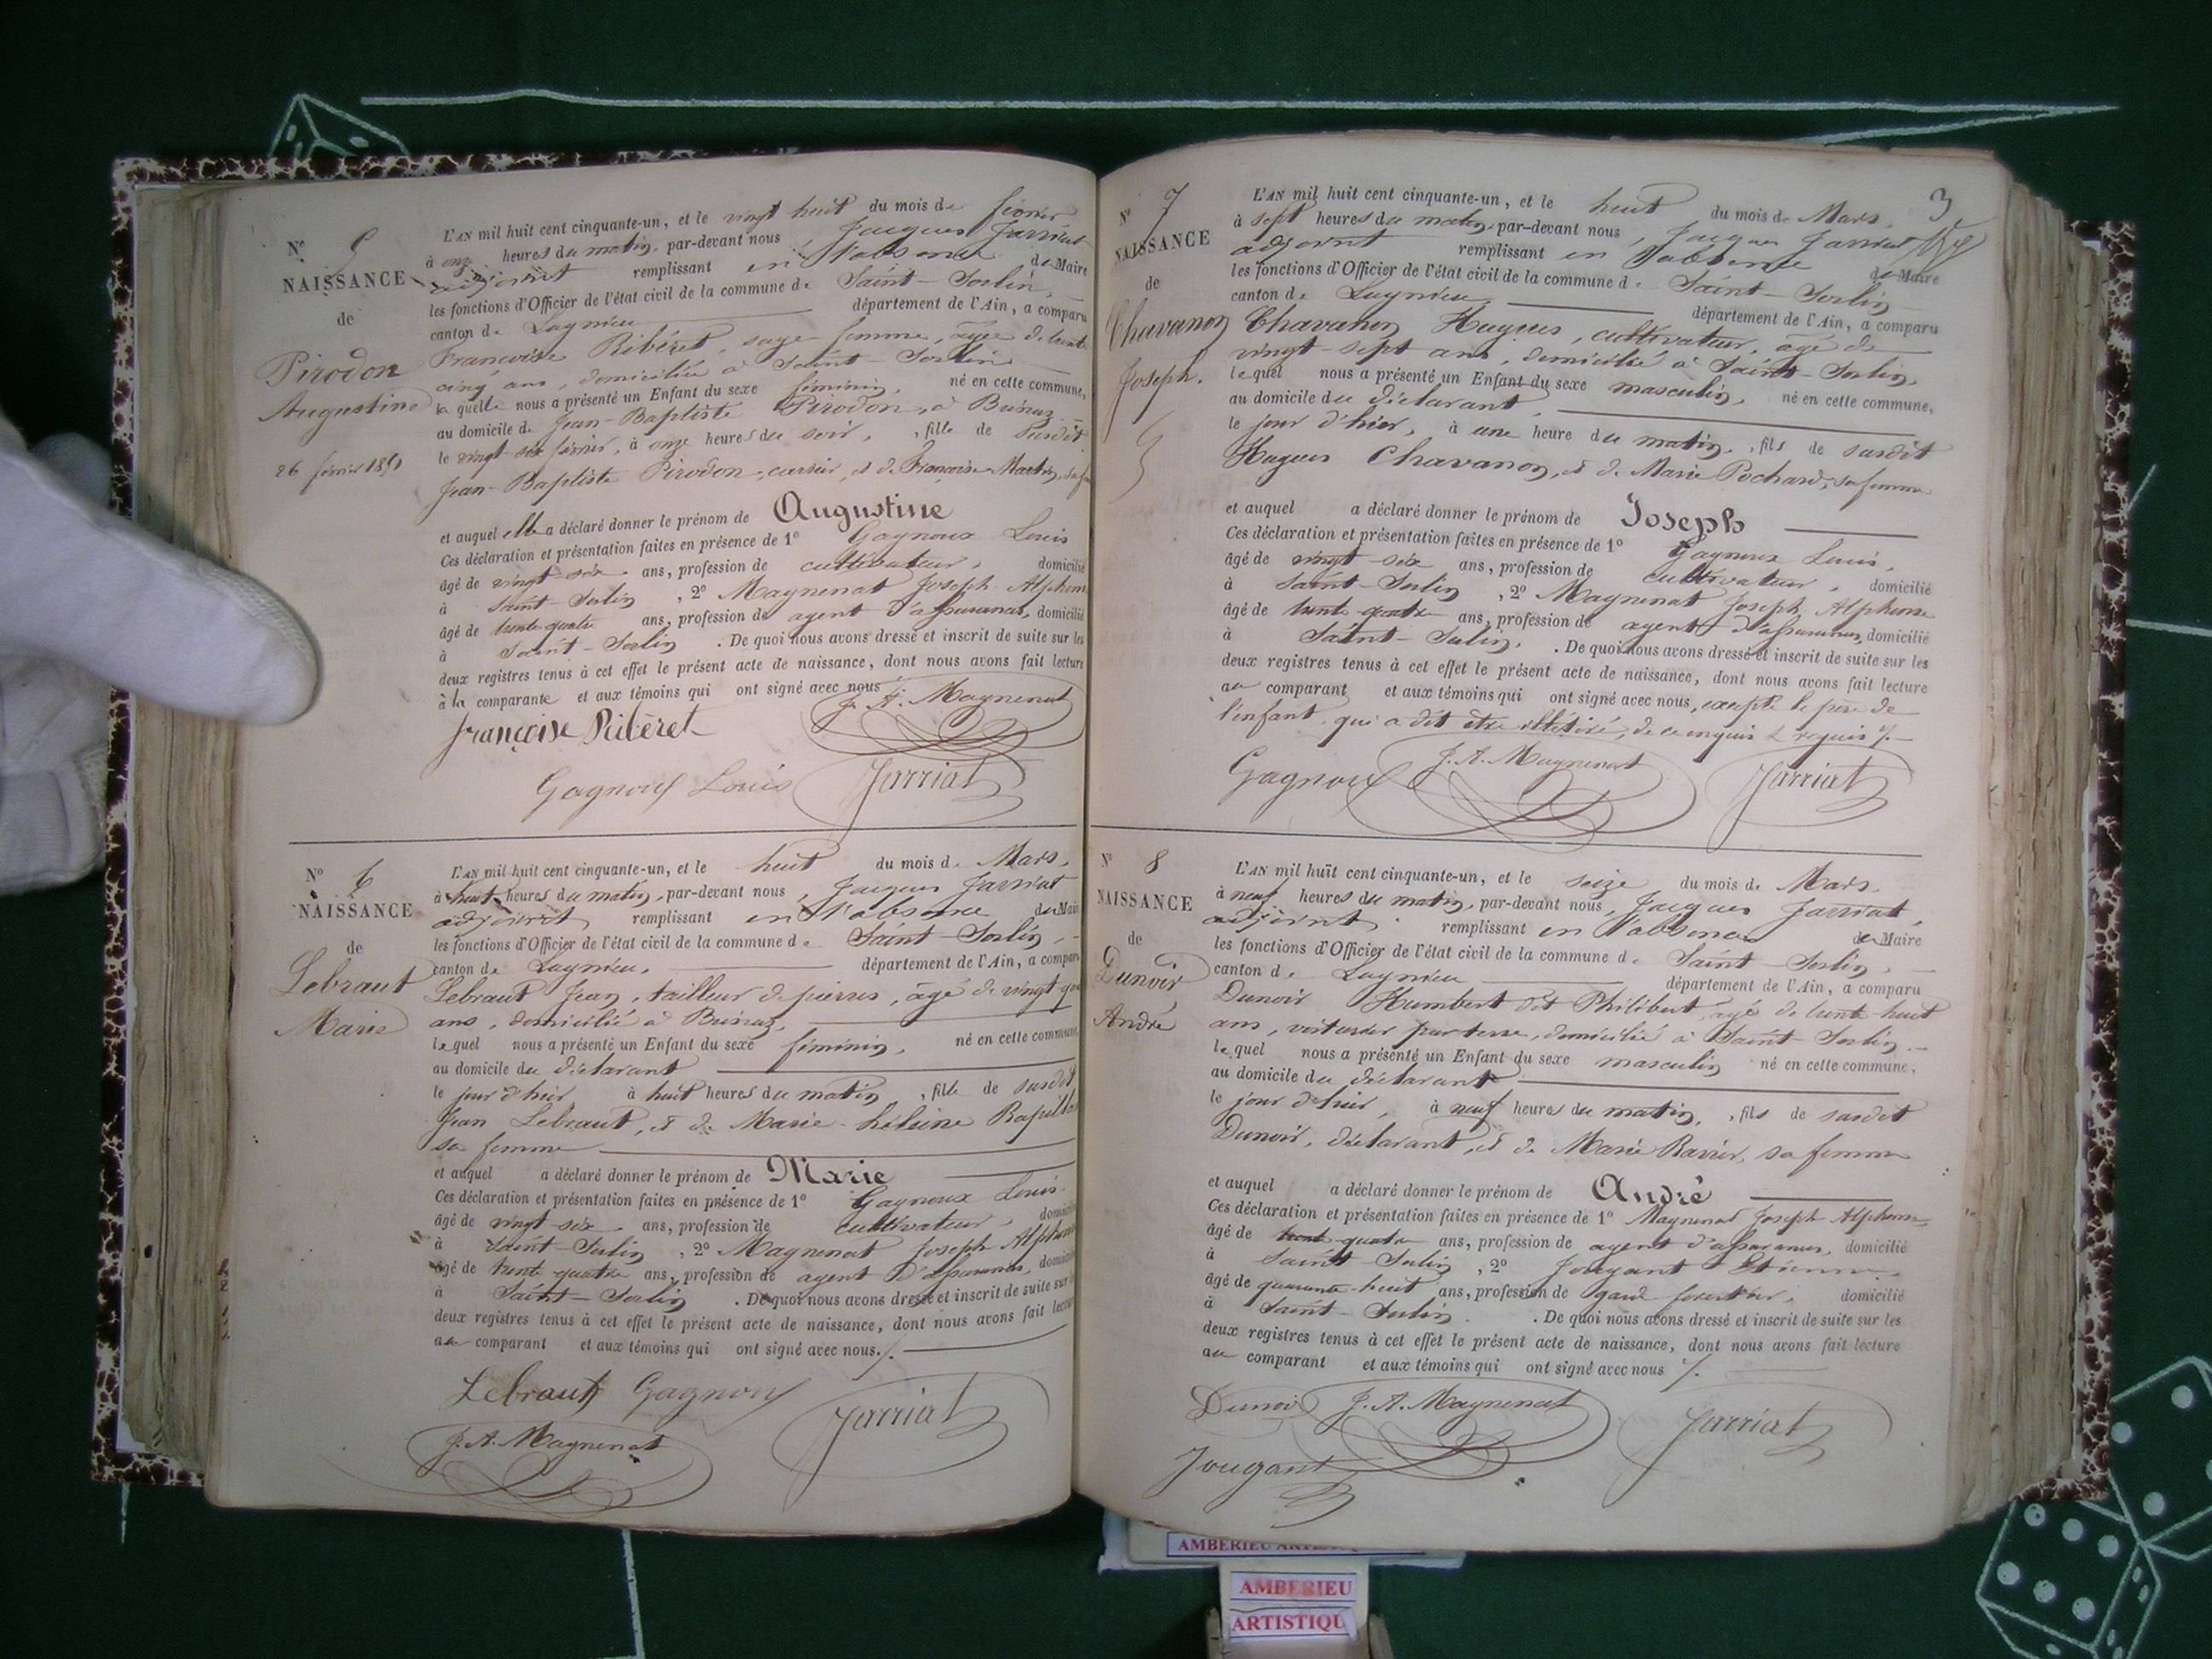 N° 5
NAISSANCE
de
Pirodon
Augustine
26 février 1851
L'AN mil huit cent cinquante-un, et le vingt huit du mois de février
à onze heures du matin, par-devant nous Jacques Jarriat
adjoint remplissant en l'absence du Maire
les fonctions d'Officier de l'état civil de la commune de Saint-Sorlin,
canton de Lagnieu département de l'Ain, a comparu
Françoise Ribéret, sage femme, âgée de trente
cinq ans, domiciliée à Saint-Sorlin
laquelle nous a présenté un Enfant du sexe féminin, né en cette commune,
au domicile de Jean-Baptiste Pirodon, à
le vingt-six février, à onze heures du soir, fille de susdit
Jean-Baptiste Pirodon, carrier, et de Françoise Martin, sa
et auquel elle a déclaré donner le prénom de Augustine
Ces déclaration et présentation faites en présence de 1° Gagnoux Louis
âgé de vingt-six ans, profession de cultivateur, domicilié
à Saint-Sorlin, 2° Magnenat Joseph Alphonse
âgé de trente-quatre ans, profession de agent d'assurances, domicilié
à Saint-Sorlin. De quoi nous avons dressé et inscrit de suite sur les
deux registres tenus à cet effet le présent acte de naissance, dont nous avons fait lecture
à la comparante et aux témoins qui ont signé avec nous
J. A. Magnenat
Françoise Ribéret
Gagnoux Louis Jarriat
N° 6
NAISSANCE
de
Lebraut
Marie
L'AN mil huit cent cinquante-un, et le huit du mois de Mars,
à huit heures du matin, par-devant nous, Jacques Jarriat
adjoint remplissant en l'absence du Maire
les fonctions d'Officier de l'état civil de la commune de Saint-Sorlin,
canton de Lagnieu, département de l'Ain, a comparu
Lebraut Jean, tailleur de pierres, âgé de vingt
ans, domicilié à
lequel nous a présenté un Enfant du sexe féminin, né en cette commune,
au domicile du déclarant
le jour d'hier à huit heures du matin, fille de susdit
Jean Lebraut, et de Marie-hélène
sa femme
et auquel a déclaré donner le prénom de Marie
Ces déclaration et présentation faites en présence de 1° Gagnoux Louis
âgé de vingt-six ans, profession de cultivateur, domicilié
à Saint-Sorlin, 2° Magnenat Joseph Alphonse
âgé de trente quatre ans, profession de agent d'assurances, domicilié
à Saint-Sorlin. De quoi nous avons dressé et inscrit de suite sur les
deux registres tenus à cet effet le présent acte de naissance, dont nous avons fait lecture
au comparant et aux témoins qui ont signé avec nous./.
Lebraut Gagnoux
Jarriat
J. A. Magnenat
3
N° 7
NAISSANCE
de
Chavanon
Joseph.
L'AN mil huit cent cinquante-un, et le huit du mois de Mars,
à sept heures du matin, par-devant nous, Jacques Jarriat
adjoint remplissant en l'absence du Maire
les fonctions d'Officier de l'état civil de la commune de Saint-Sorlin
canton de Lagnieu département de l'Ain, a comparu
Chavanon Hugues, cultivateur, âgé de
vingt-sept ans, domicilié à Saint-Sorlin,
lequel nous a présenté un Enfant du sexe masculin, né en cette commune,
au domicile du déclarant,
le jour d'hier, à une heure du matin, fils de susdit
Hugues Chavanon, et de Marie Pochard, sa femme
et auquel a déclaré donner le prénom de Joseph
Ces déclaration et présentation faites en présence de 1° Gagnoux Louis,
âgé de vingt-six ans, profession de cultivateur, domicilié
à Saint-Sorlin, 2° Magnenat Joseph Alphonse
âgé de trente-quatre ans, profession de agent d'assurances, domicilié
à Saint-Sorlin. De quoi nous avons dressé et inscrit de suite sur les
deux registres tenus à cet effet le présent acte de naissance, dont nous avons fait lecture
au comparant et aux témoins qui ont signé avec nous, excepté le père de
l'enfant qui a dit être illettré, de ce enquis & requis./.
Gagnoux J. A. Magnenat Jarriat
N° 8
NAISSANCE
de
Dunoir
André
L'AN mil huit cent cinquante-un, et le seize du mois de Mars,
à neuf heures du matin, par-devant nous, Jacques Jarriat,
adjoint remplissant en l'absence du Maire
les fonctions d'Officier de l'état civil de la commune de Saint-Sorlin,
canton de Lagnieu département de l'Ain, a comparu
Dunoir Humbert dit Philibert, âgé de trente-huit
ans, voiturier par terre, domicilié à Saint-Sorlin,
lequel nous a présenté un Enfant du sexe masculin né en cette commune,
au domicile du déclarant
le jour d'hier, à neuf heures du matin, fils de susdit
Dunoir, déclarant, et de Marie Ravier, sa femme
et auquel a déclaré donner le prénom de André
Ces déclaration et présentation faites en présence de 1° Magnenat Joseph Alphonse,
âgé de trente-quatre ans, profession de agent d'assurances, domicilié
à Saint-Sorlin, 2° Jougant Etienne,
âgé de quarante-huit ans, profession de garde forestier, domicilié
à Saint-Sorlin. De quoi nous avons dressé et inscrit de suite sur les
deux registres tenus à cet effet le présent acte de naissance, dont nous avons fait lecture
au comparant et aux témoins qui ont signé avec nous./.
Dunoir J. A. Magnenat Jarriat
Jougant
AMBERIEU
AMBERIEU
ARTISTIQU